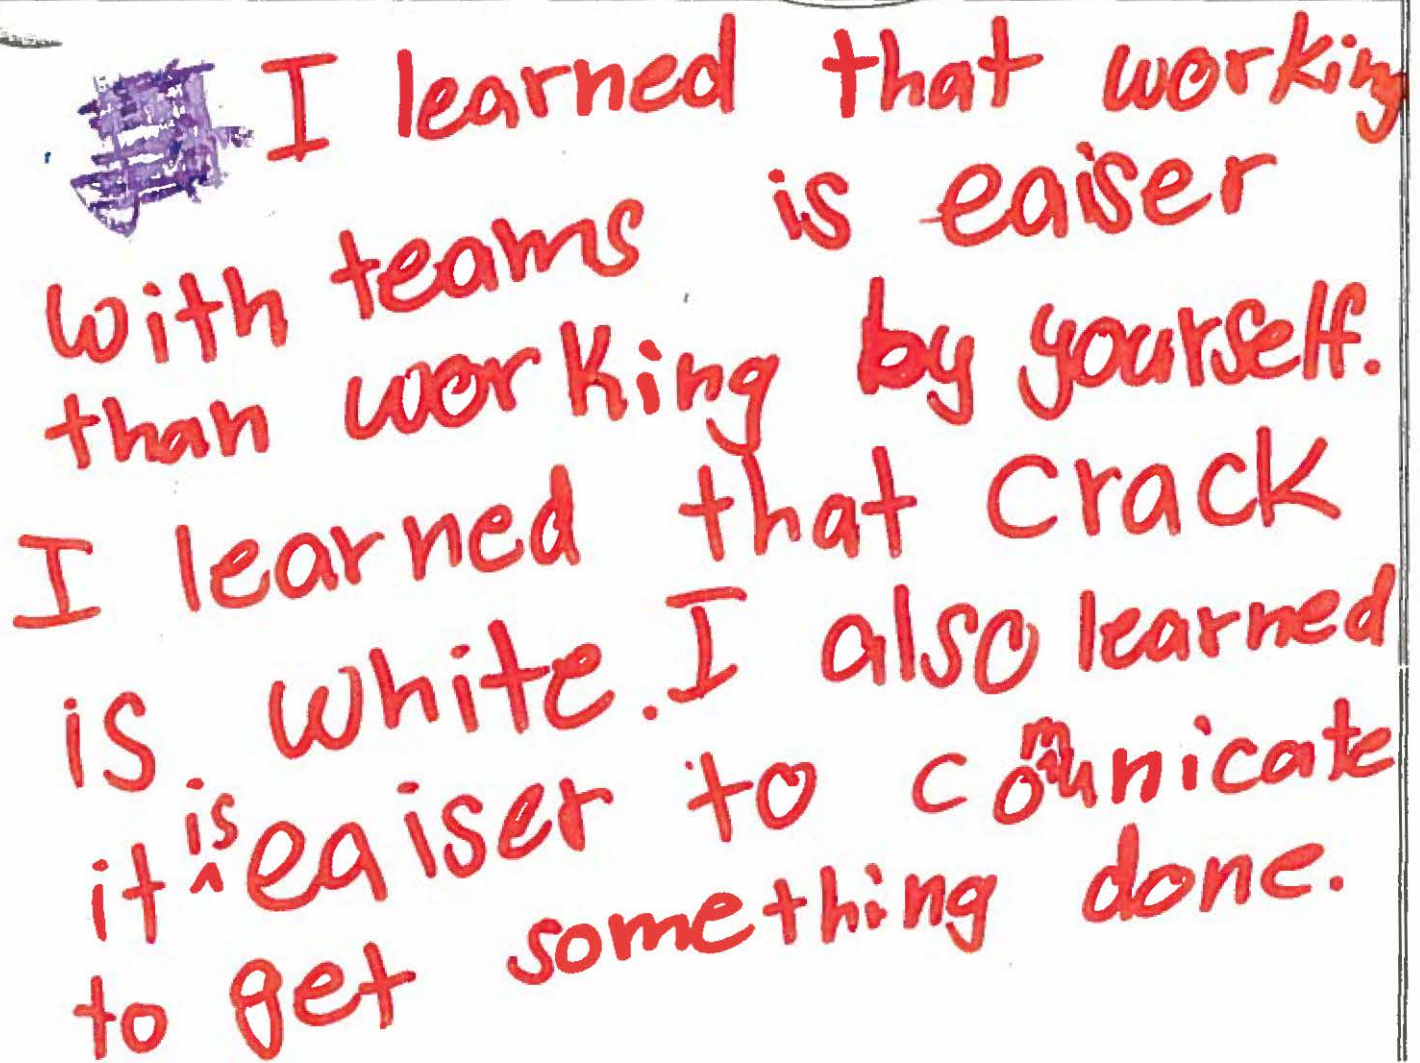 I learned that working
with teams is eaiser
than working by yourself.
I learned that crack
is white. I also learned
it is eaiser to comunicate
to get something done.